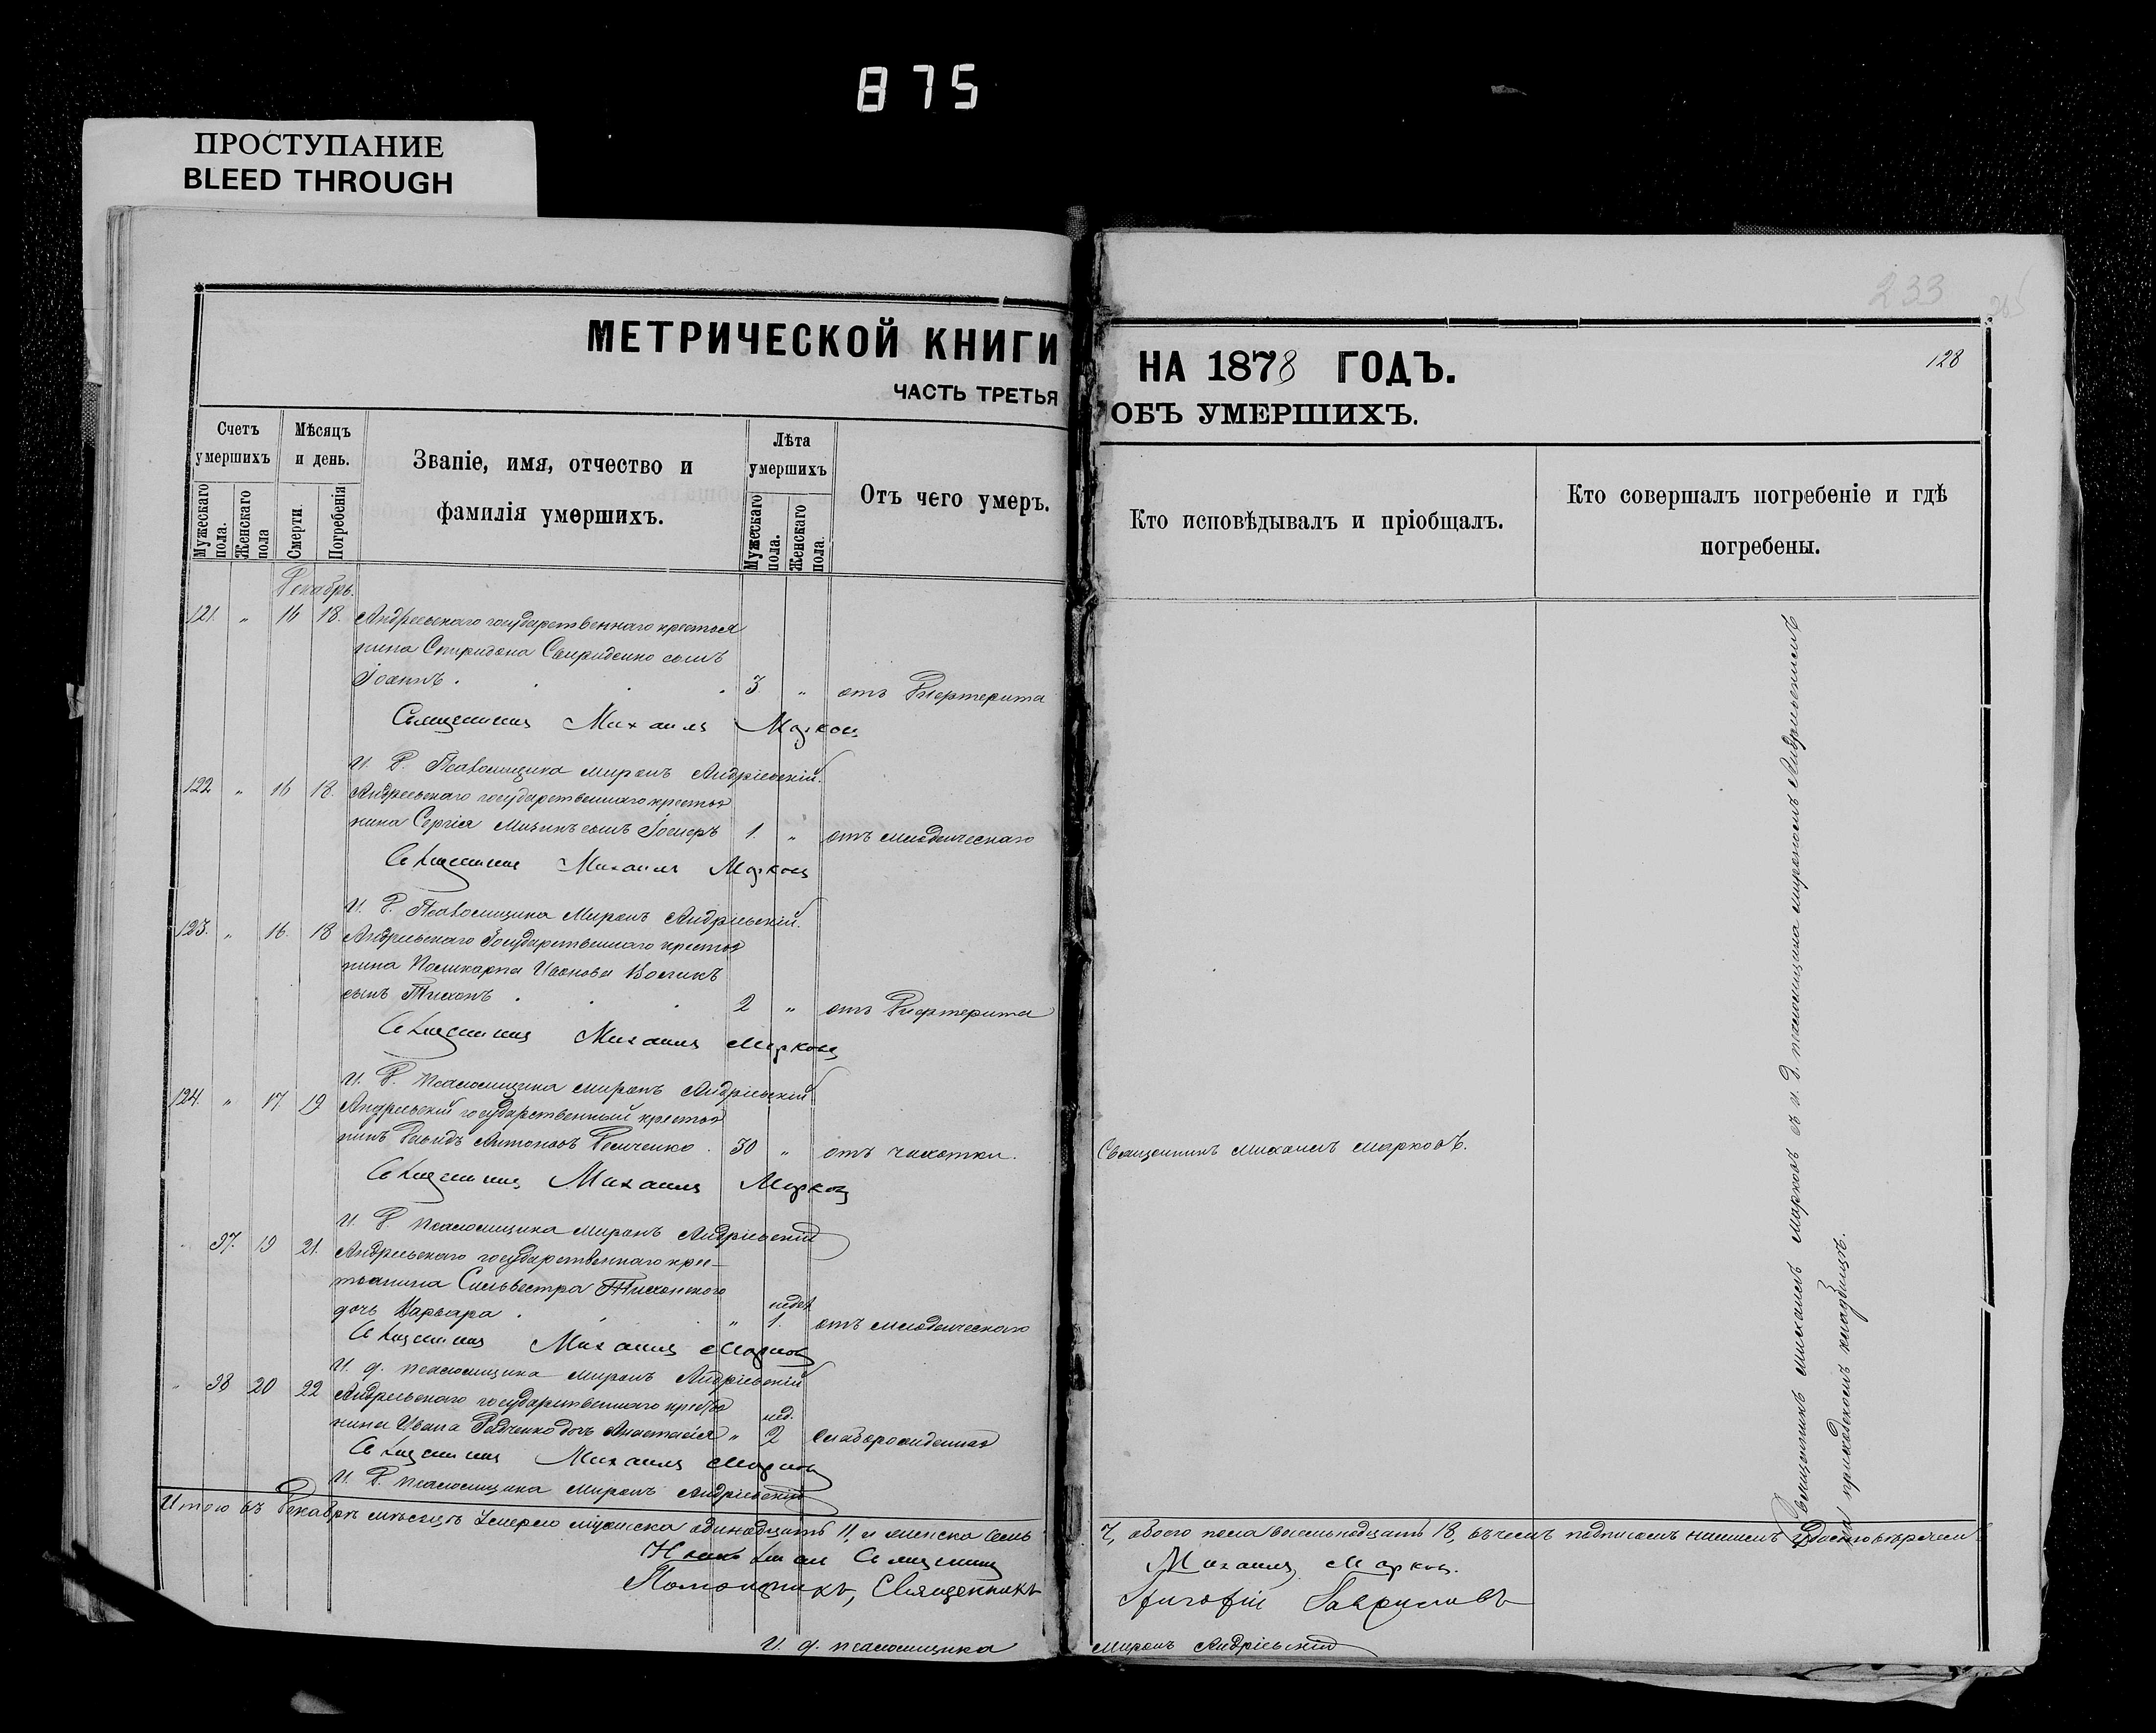 875
ПРОСТУПАНИЕ
BLEED THROUGH
233
МЕТРИЧЕСКОЙ КНИГИ НА 1878 ГОДЪ.
128
ЧАСТЬ ТРЕТЬЯ ОБЪ УМЕРШИХЪ.
Счетъ умершихъ
Мужескаго пола.
Женскаго пола
Мѣсяцъ и день.
Смерти.
Погребенія
Званіе, имя, отчество и фамилія умершихъ.
Лѣта умершихъ
Мужескаго пола.
Женскаго пола.
Отъ чего умеръ.
Кто исповѣдывалъ и пріобщалъ.
Кто совершалъ погребеніе и гдѣ погребены.
Декабрь.
121. " 16 18. Андреевскаго государственнаго крестья
нина Спиридона Свириденко сынъ
Іоаннъ. 3 " отъ Дифтерита
Священникъ Михаилъ Марковъ
И. Д. Псаломщика Миронъ Андріевскій.
122 " 16 18. Андреевскаго государственнаго крестья
нина Сергія сынъ 1. " отъ младенческаго
Священникъ Михаилъ Марковъ
И. Д. Псаломщика Миронъ Андріевскій.
123. " 16. 18 Андреевскаго Государственнаго крестья
нина Поликарпа Иванова
сынъ Тихонъ 2 " отъ Дифтерита
Священникъ Михаилъ Марковъ
И. Д. Псаломщика Миронъ Андріевскій
124. " 17 19 Андреевскій государственный крестья
нинъ Давидъ Антоновъ 30 " отъ чахотки. Священникъ Михаилъ Марковъ.
Священникъ Михаилъ Марковъ
И. Д. Псаломщика Миронъ Андріевскій
" 37. 19 21. Андреевскаго государственнаго крес-
тьянина Сильвестра Тихонского
недел
дочь Варвара " 1. отъ младенческаго
Священникъ Михаилъ Марковъ
И. д. псаломщика Миронъ Андріевскій
" 38 20 22 Андреевскаго государственнаго крестья
нед.
нина Ивана Радченко дочь Анастасія " 2 Слаборожденная
Священникъ Михаилъ Марковъ
И. Д. Псаломщика Миронъ Андріевскій
Священникъ Михаилъ Марковъ съ и. д. псаломщика Мирономъ Андріевскимъ
на приходскомъ кладбищѣ.
Итого въ Декабрѣ мѣсяцѣ Умерло мужеска одинадцать 11, и женска семь 7, обоего пола восемьнадцать 18, въ чемъ подписомъ нашимъ
Священникъ Михаилъ Марковъ.
Помощникъ, Священникъ Григорій Гавриловъ
И. д. псаломщика Миронъ Андріевскій